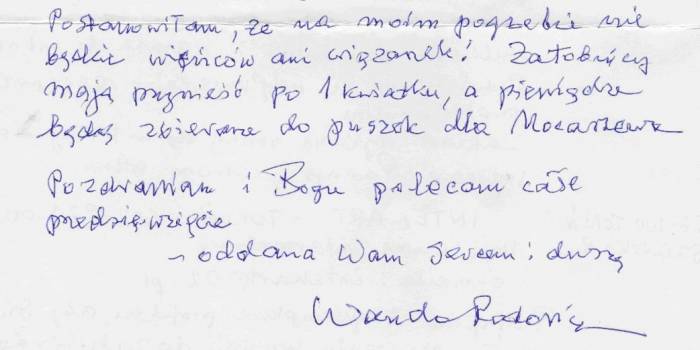 Postanowiłam, że na moim pogrzebie nie
będzie wieńców ani wiązanek! Żałobnicy
mają przynieść po 1 kwiatku, a pieniądze
będą zbierane do puszek dla Mocarzewa
Pozdrawiam i Bogu polecam całe
przedsięwzięcie
– oddana Wam sercem i duszą
Wanda